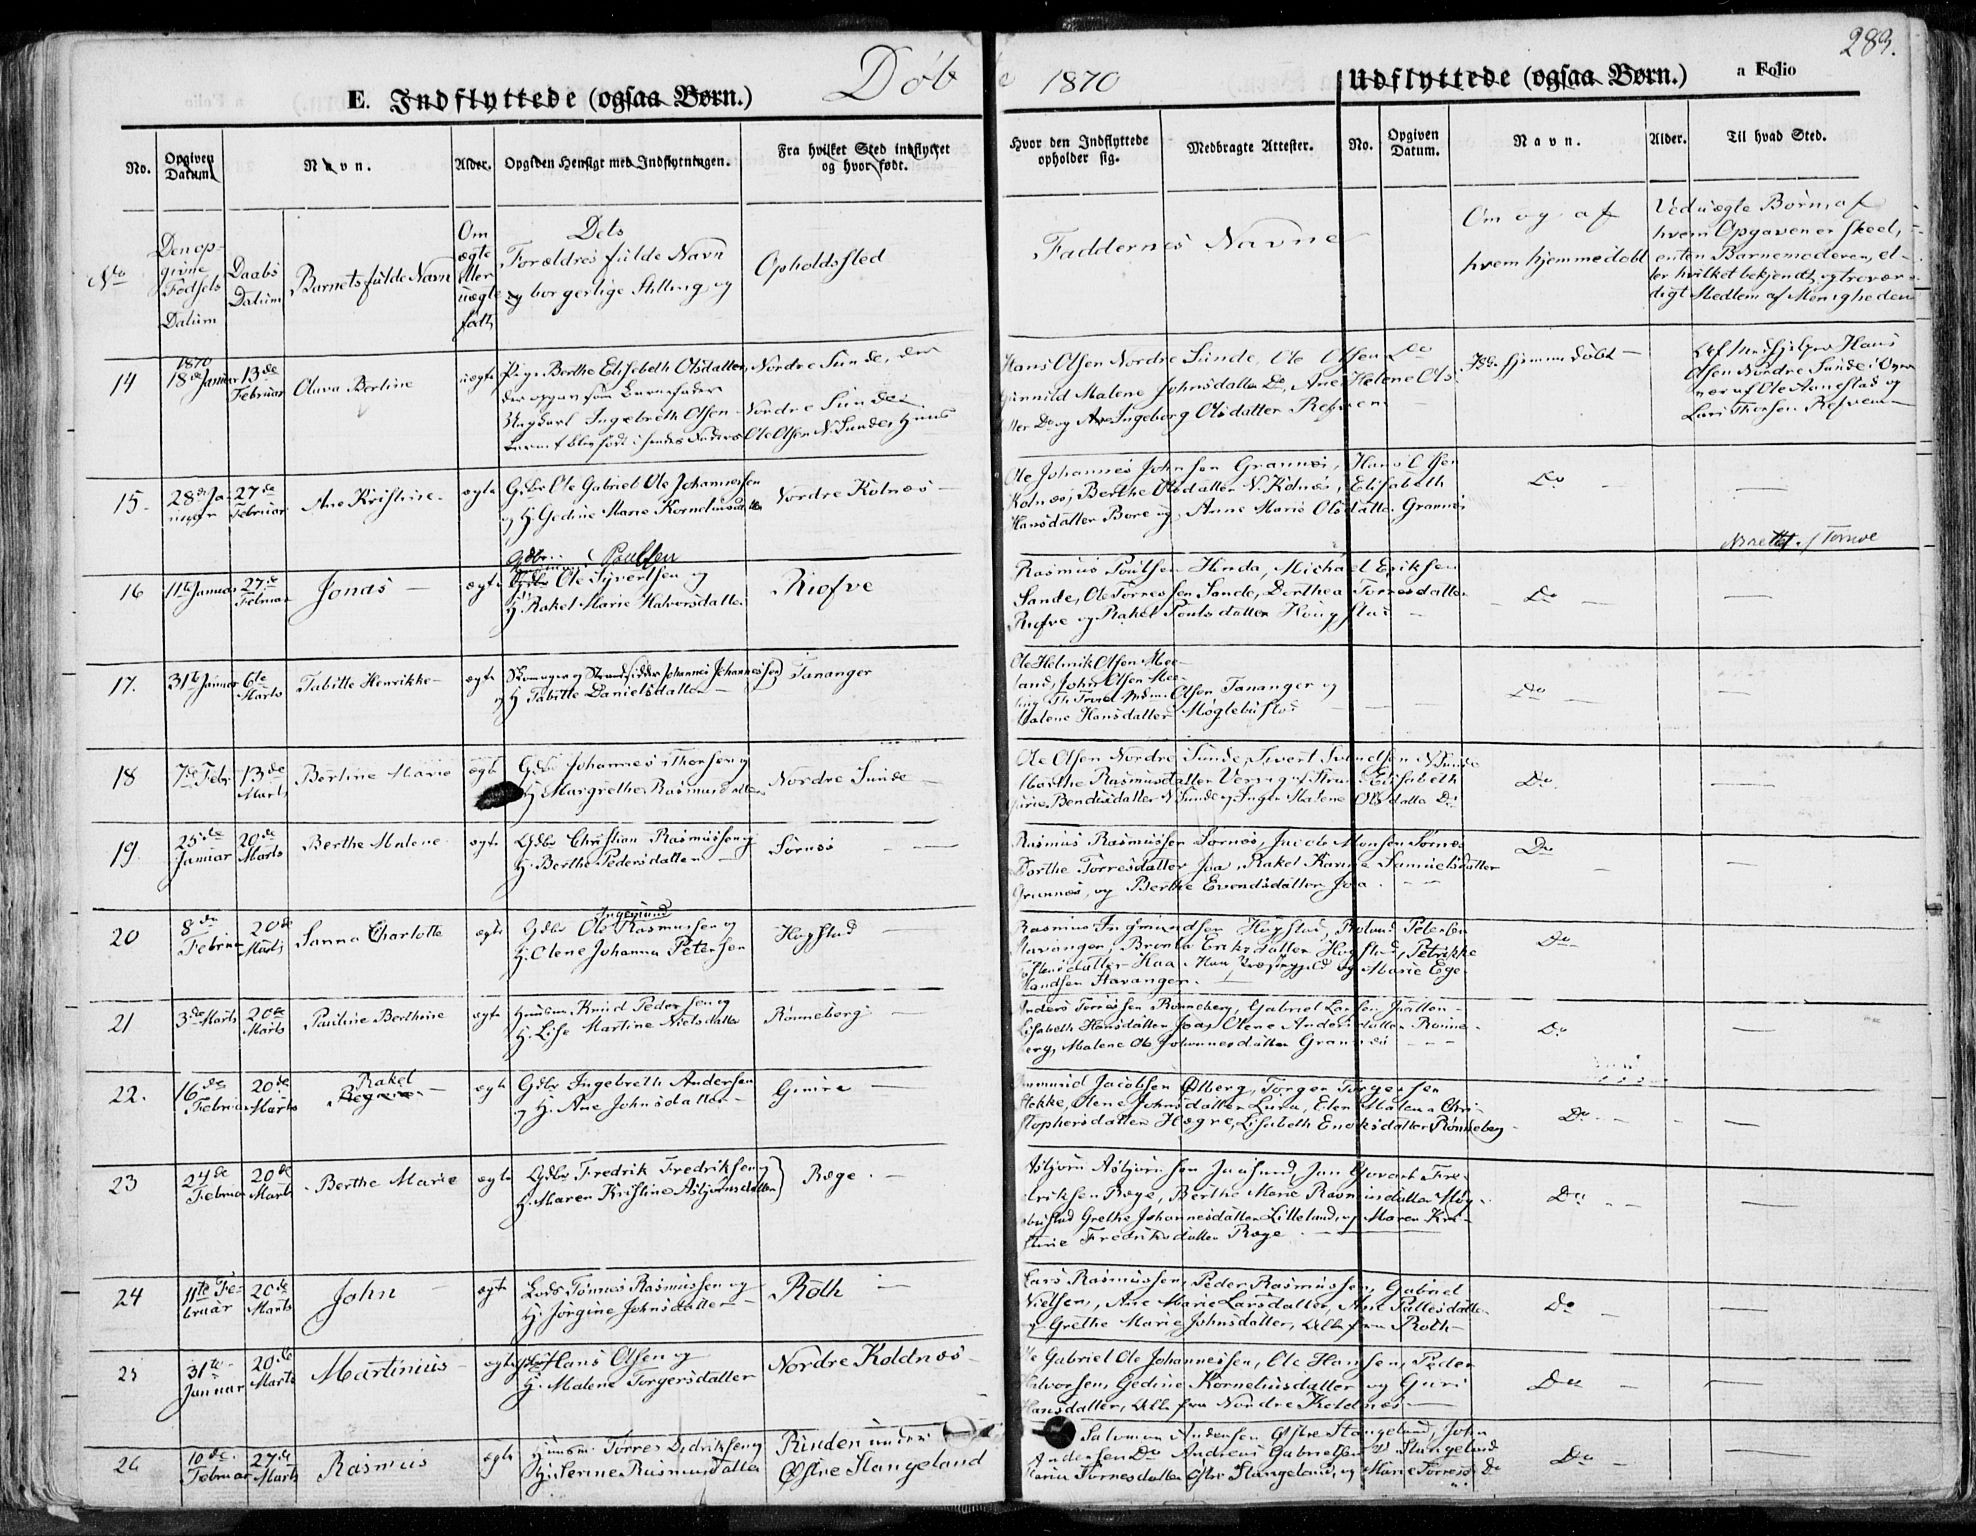 283.
Døbte 1870
E. Indflyttede (ogsaa Børn.)
Udflyttede (ogsaa Børn.) a Folio
No. Opgiven Datum. Navn. Alder. Opgiven Hensigt med Indflytningen. Fra hvilket Sted indflyttet og hvor født. Hvor den Indflyttede opholder sig. Medbragte Attester. No. Opgiven Datum. Navn. Alder. Til hvad Sted.
No Den opgivne Fødsels Datum
Daabs Datum
Barnets fulde Navn
Om ægte eller uægte født
Dets Forældres fulde Navn og borgerlige Stilling og
Opholdssted
Faddernes Navne
Om og af hvem hjemmedøbt
Ved uægte Børn, af
hvem Opgaven er skeet,
enten Barnemoderen, el-
ler hvilket bekjendt og trovær-
digt Medlem af Menigheden
14 1870 18de Januar 13de Februar Olava Bertine uægte
Pige Berthe Elisabeth Olsdatter, Nordre Sunde, der
der opgav som Barnefader
Ungkarl Ingebreth Olsen Nordre Sunde.
Barnet blev født i hendes Faders Ole Olsen N. Sundes Huus
Hans Olsen Nordre Sunde, Ole Olsen Do
Gunnild Malene Johnsdatter Do, Ane Helene Ols-
datter Do og Ane Ingeborg Olsdatter Refsnes
Hans
Olsen Nordre Sunde
af Ole Aanestad og
15. 28de Januar 27de Februar Ane Kristine. ægte
Gdbr Ole Gabriel Ole Johannessen
og H. Gedine Marie Korneliusdatter
Nordre Kolnæs
Ole Johannes Johnsen Grannes, Hans Olsen
Kolnæs, Berthe Olsdatter N. Kolnæs, Elisabeth
Hansdatter Bore og Anne Marie Olsdatter Grannes
Do
16 11te Januar 27de Februar Jonas ægte
Paulsen
Ole Sivertsen og
H. Rakel Marie Halvorsdatter
Risfve
Rasmus Poulsen Hinda, Michael Eriksen
Sande, Ole Torressen Sande, Dorthea Torresdatter
Risfve og Rakel Poulsdatter Hougstad
Do
17. 31te Januar 6te Marts Tabitte Henrikke ægte
Skomager og Strandsidder Johannes Johannessen
og H. Tabitte Danielsdatter
Tananger
Ole Helmik Olsen Mee-
land, John Olsen Mee-
Olsen Tananger og
Malene Hansdatter Møglebustad
Do
18 7de Febr 13de Marts Bertine Marie ægte
Gdbr Johannes Thorsen og
H. Margrethe Rasmusdatter
Nordre Sunde
Ole Olsen Nordre Sunde, Sivert Svendsen N. Sunde
Marthe Rasmusdatter Elisabeth
Bendixdatter N. Sunde og Inger Malene Olsdatter Do
Do
19 25de Januar 20de Marts Berthe Malene ægte
Gdbr Christian Rasmussen og
H. Berthe Pedersdatter
Sørnes
Rasmus Rasmussen Sørnes, Jacob Monsen Sørnes
Dorthe Torresdatter Joa, Rakel Karine Samuelsdatter
Grannes, og Berthe Evendsdatter Joa.
Do
20 8de Februar 20de Marts Sanna Charlotte ægte
Ingemund
Gdbr Ole Rasmussen og
H. Olene Johanna Petersen
Hogstad
Rasmus Ingmundsen Hogstad, Petersen
Stavanger, Eriksdatter Hogstad, Petrikke
Haa og Marie Ege-
landsen Stavanger.
Do
21 3de Marts 20de Marts Pauline Berthine ægte
Huusm Knud Pedersen og
H. Lise Martine Nielsdatter
Rønneberg
Anders Torressen Rønneberg, Gabriel Larsen Jaatten
Lisabeth Hansdatter Joa, Olene Andersdatter Rønne-
berg, Malene Ole Johannesdatter Grannes
Do
22. 16de Februar 20de Marts Rakel ægte
Gdbr Ingebreth Andersen
og H. Ane Johnsdatter
Gimre
Ommund Jacobsen Ølberg, Torger Torgersen
Stokke, Olene Johnsdatter Lura, Elen Malena Chri-
stophersdatter Hægre, Lisabeth Enoksdatter Rønneberg
Do
23 24de Februar 20de Marts Berthe Marie ægte
Gdbr Fredrik Fredriksen og
H. Maren Kristine Asbjørnsdatter
Ræge
Asbjørn Asbjørnsen Jaasund, Jan Govert Fre-
driksen Ræge, Berthe Marie Rasmusdatter Møg-
bustad Grethe Johannesdatter Lilleland, og Maren Kri-
stine Fredriksdatter Ræge
Do
24 11te Februar 20de Marts John ægte
Lods Tønnes Rasmussen og
H. Jørgine Johnsdatter
Roth
Lars Rasmussen, Peder Rasmussen, Gabriel
Nielsen, Ane Marie Larsdatter, Ane Pallesdatter
og Grethe Marie Johnsdatter, Alle fra Roth
Do
25 31te Januar 20de Marts Martinius ægte
Gdbr Hans Olsen og
H. Malene Torgersdatter
Nordre Koldnæs
Ole Gabriel Ole Johannessen, Ole Hansen, Peder
Halvorsen, Gedine Korneliusdatter og Guri
Hansdatter, Alle fra Nordre Koldnes
Do
26 10de Februar 27de Marts Rasmus ægte
Huusm. Torres Didriksen og
H. Serine Rasmusdatter
Rinden under
Østre Stangeland
Salomon Andersen Østre Stangeland, John
Andersen Do Andreas Gabrielsen V. Stangeland
Maria Torresdatter Østre Stangeland, og Marie Torresd. Do
Do